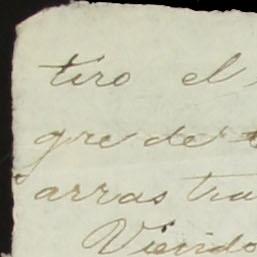 tiro el
gre de
arras tra
Viendo